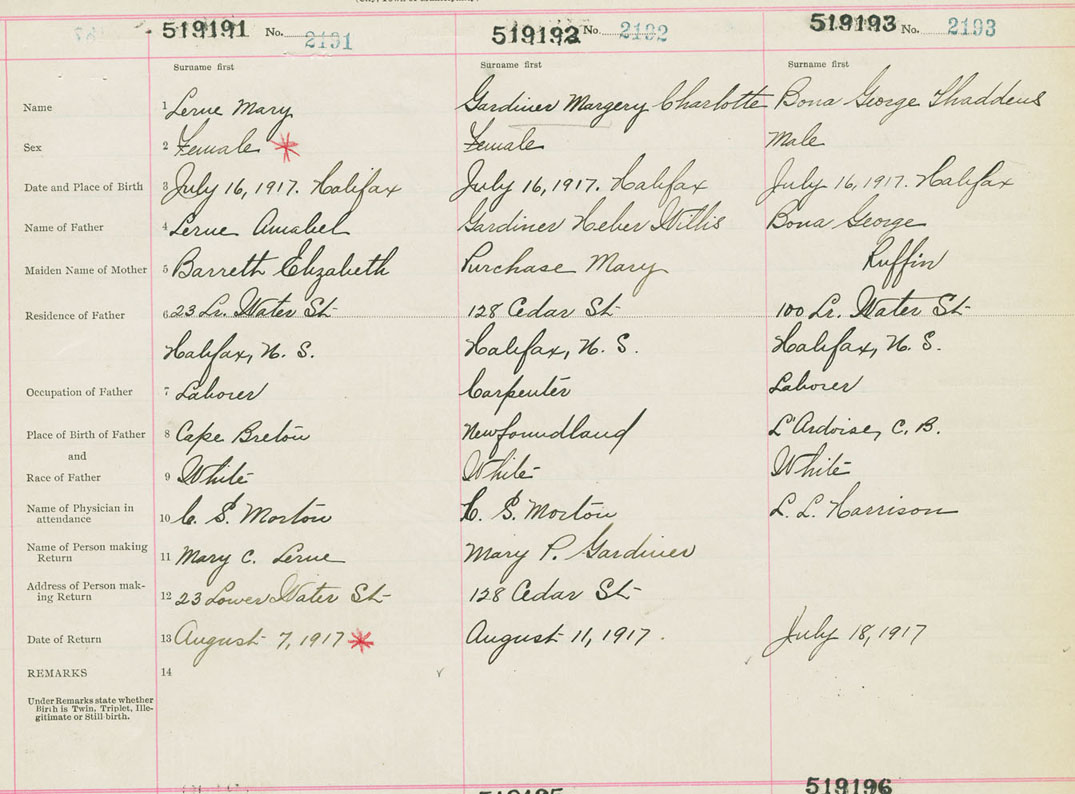 519191 No. 2191 519192 No. 2192 519193 No. 2193
Surname first Surname first Surname first
Name 1 Lerue Mary Gardiner Margery Charlotte Bona George Thaddeus
Sex 2 Female Female Male
Date and Place of Birth 3 July 16, 1917. Halifax July 16, 1917. Halifax July 16, 1917. Halifax
Name of Father 4 Lerue Amabel Gardiner Heber Willis Bona George
Maiden Name of Mother 5 Barrett Elizabeth Purchase Mary Ruffin
Residence of Father 6 23 Lr. Water St 128 Cedar St 100 Lr. Water St
Halifax, N. S. Halifax, N. S. Halifax, N. S.
Occupation of Father 7 Laborer Carpenter Laborer
Place of Birth of Father 8 Cape Breton Newfoundland L'Ardoise, C. B.
and
Race of Father 9 White White White
Name of Physician in
attendance 10 C. S. Morton C. S. Morton L. L. Harrison
Name of Person making
Return 11 Mary C. Lerue Mary P. Gardiner
Address of Person mak-
ing Return 12 23 Lower Water St 128 Cedar St
Date of Return 13 August 7, 1917 August 11, 1917. July 18, 1917
REMARKS 14
Under Remarks state whether
Birth is Twin, Triplet, Ille-
gitimate or Still birth.
519196